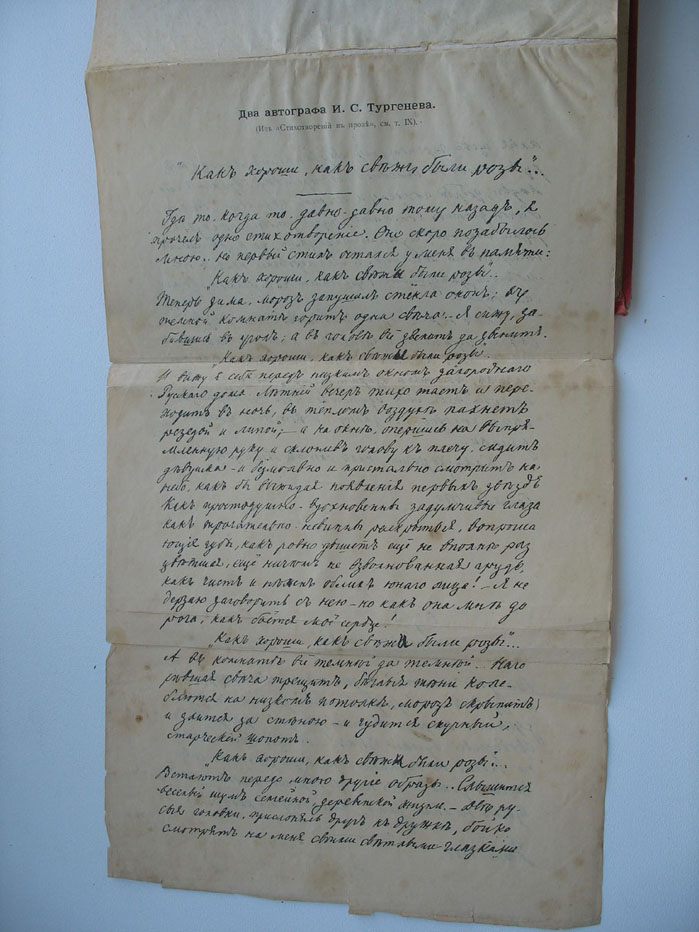 Два автографа И. С. Тургенева.
(Изъ «Стихотвореній въ прозѣ», см. т. IX).
"Какъ хороши, какъ свѣжи были розы"...
Гдѣ то. когда то. давно-давно тому назадъ, я
прочелъ одно стихотвореніе. Оно скоро позабылось
мною.. но первый стихъ остался у меня въ памяти:
"Какъ хороши, какъ свѣжи были розы"..
Теперь зима. морозъ запушилъ стёкла оконъ; въ
темной комнатѣ горитъ одна свѣча. Я сижу, за-
бившись въ уголъ; а въ головѣ всё звенитъ да звенитъ.
"Какъ хороши, какъ свѣжи были розы".
И вижу я себя передъ низкимъ окномъ загороднаго
Русскаго дома Лѣтній вечеръ тихо таетъ и пере-
ходитъ въ ночь, въ тёпломъ воздухѣ пахнетъ
резедой и липой; — а на окнѣ, опершись на выпря-
мленную руку и склонивъ голову къ плечу. сидитъ
дѣвушка - и безмолвно и пристально смотритъ на
небо, какъ бы выжидая появленія первыхъ звѣздъ
Какъ простодушно-вдохновенны задумчивые глаза
какъ трогательно-невинны раскрытыя, вопроша
ющія губы, какъ ровно дышетъ ещё не вполнѣ раз
цвѣтшая, ещё ничѣмъ не взволнованная грудь,
какъ чистъ и нѣженъ обликъ юнаго лица! - Я не
дерзаю заговорить съ нею - но какъ она мнѣ до
рога, какъ бьётся моё сердце!
"Какъ хороши, какъ свѣжи были розы"...
А въ комнатѣ всё темнѣй да темнѣй. Наго
рѣвшая свѣча трещитъ, бѣглыя тѣни коле-
блются на низкомъ потолкѣ, морозъ скрыпитъ
и злится за стѣною - и чудится скучный,
старческій шопотъ.
"Какъ хороши, какъ свѣжи были розы"...
Встаютъ передо мною другіе образы... Слышится
веселый шумъ семейной деревенской жизни. - Двѣ ру-
сыя головки, прислонясь другъ къ дружкѣ, бойко
смотрятъ на меня своими свѣтлыми глазками